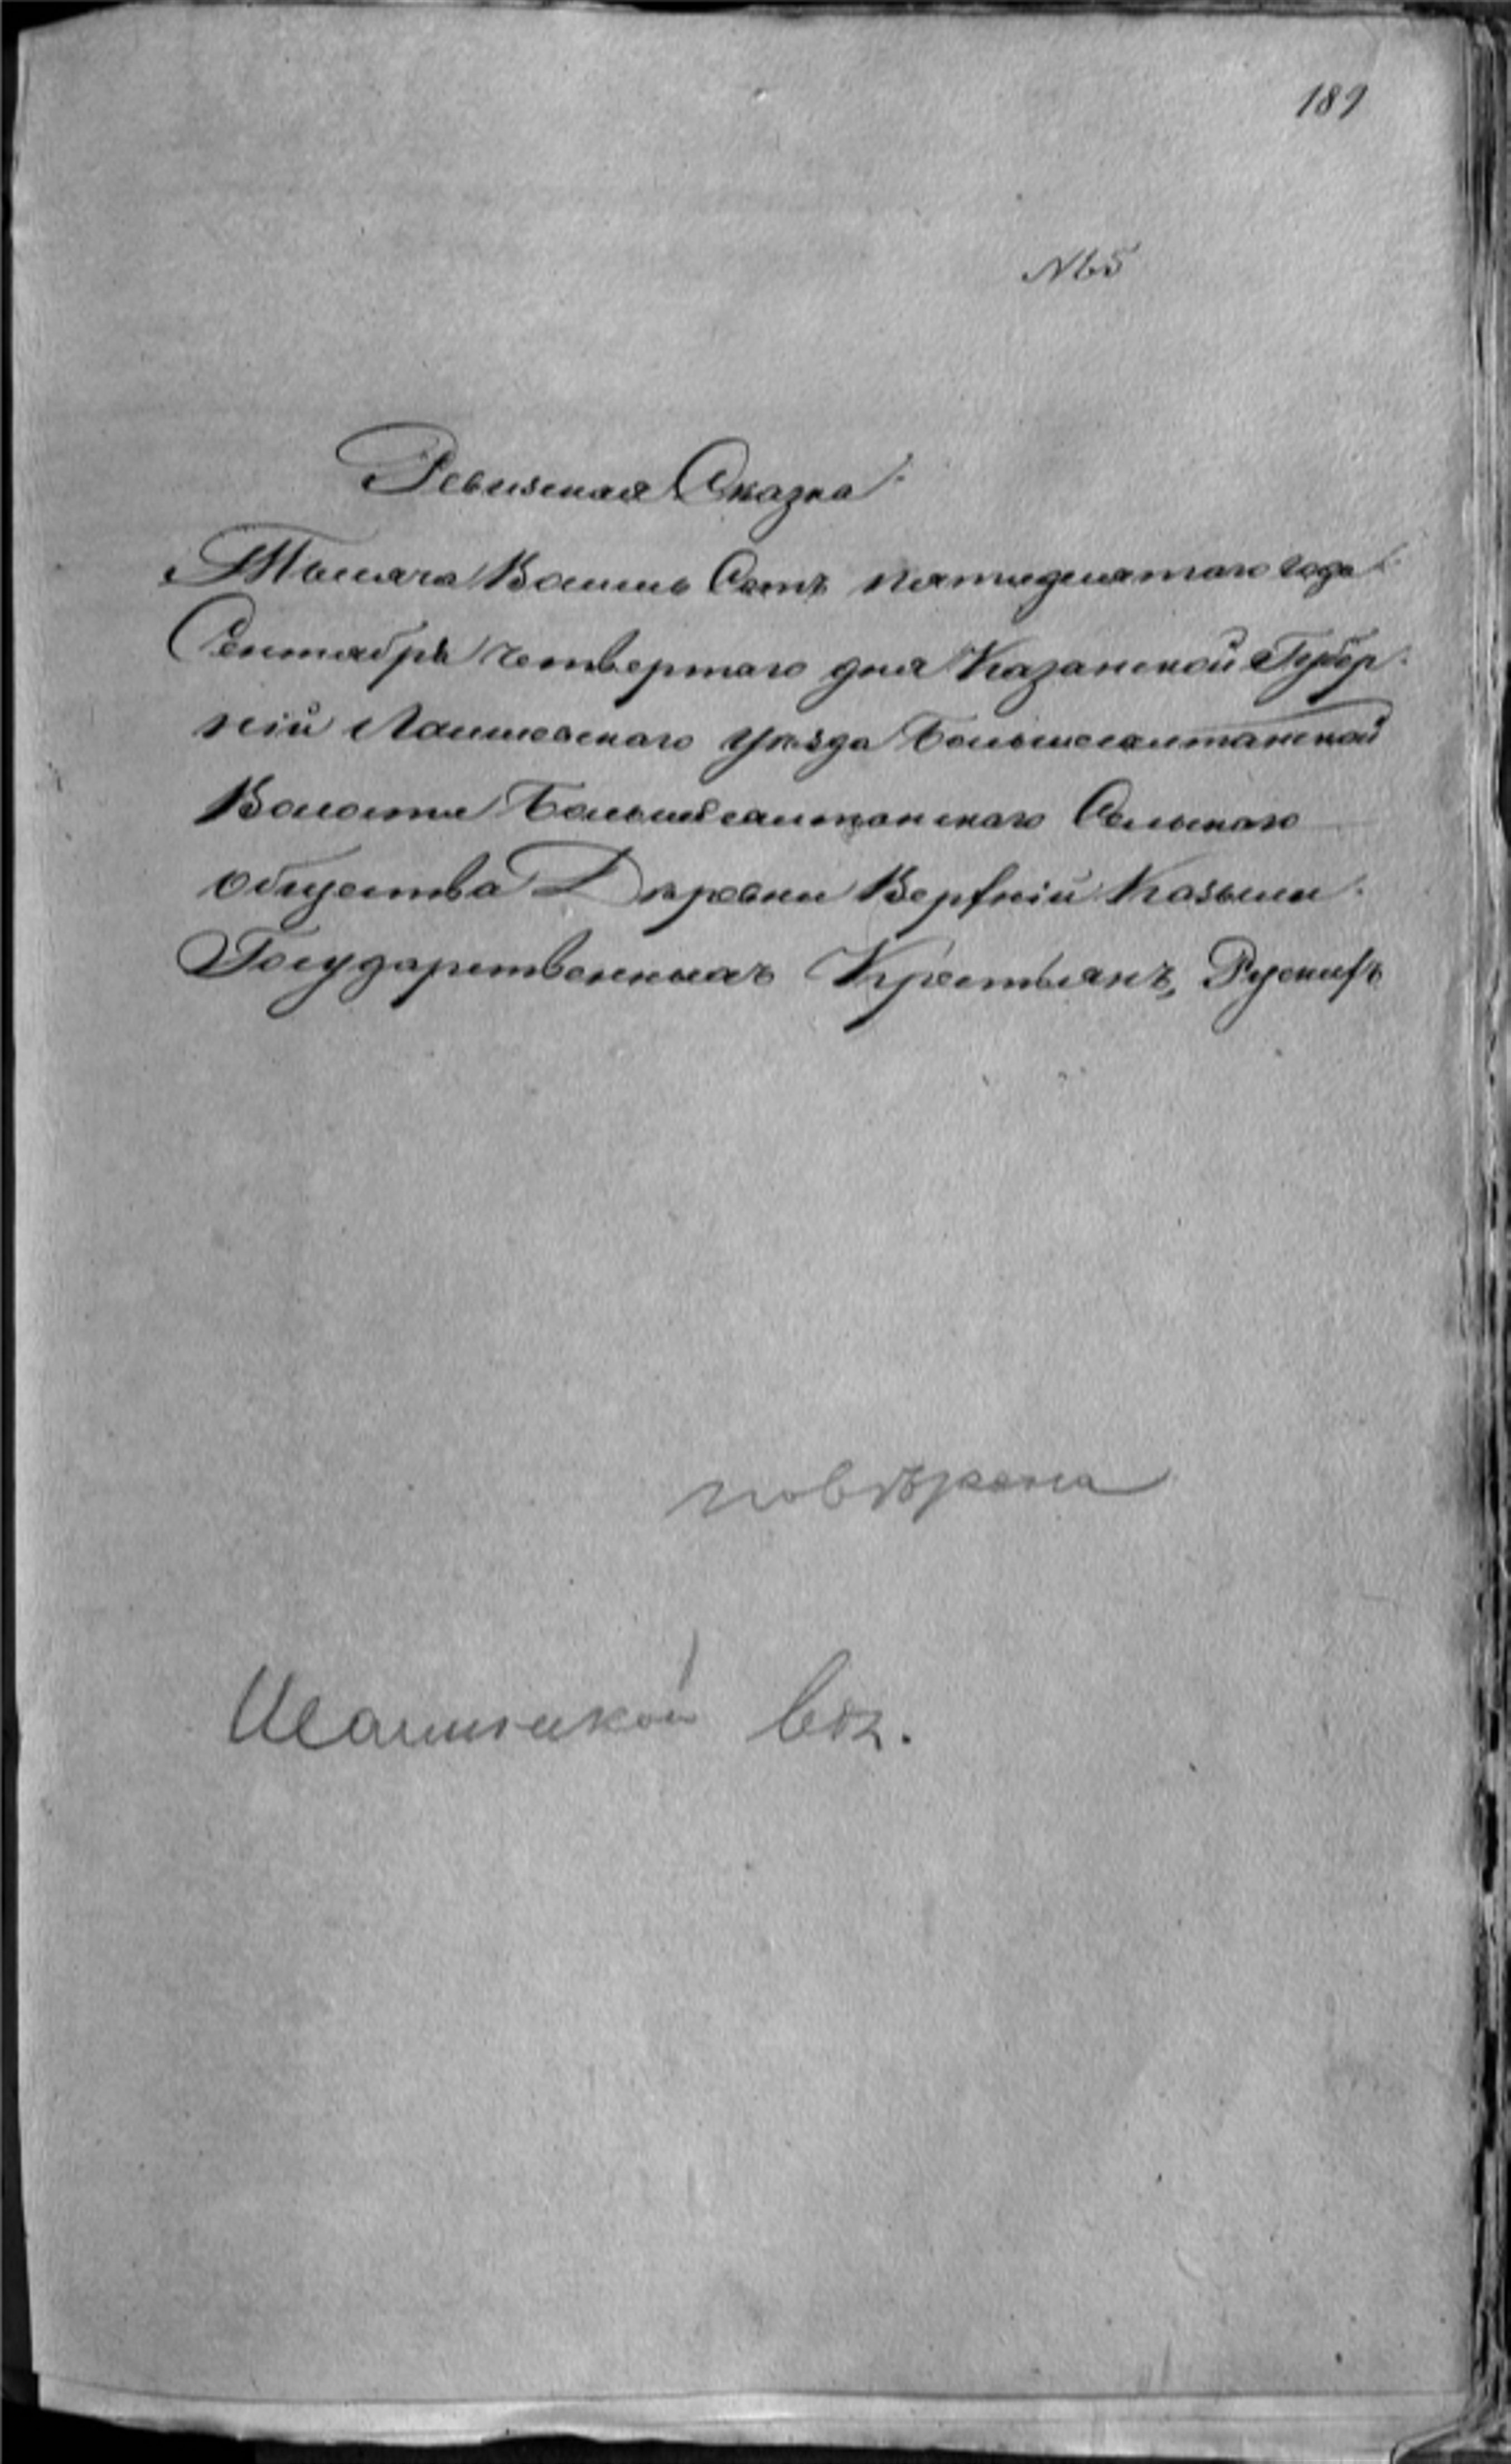 189
№5
Ревизская Сказка
Тысяча Восемь Сотъ пятидесятаго года
Сентября четвертаго дня Казанской Губер
ніи Лаишевскаго уѣзда Большесалтанской
Волости Большесалтанскаго Сельскаго
общества Деревни Верхній Козыли
Государственныхъ Крестьянъ, Рускихъ
повѣрена
вол.